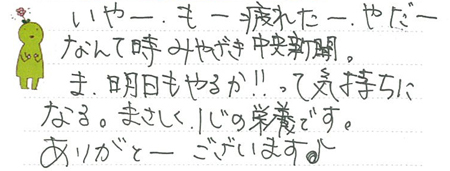 いやー.もー疲れたー.やだー
なんて時みやざき中央新聞。
ま、明日もやるか!!って気持ちに
なる。まさしく、心の栄養です。
ありがとーございます♪